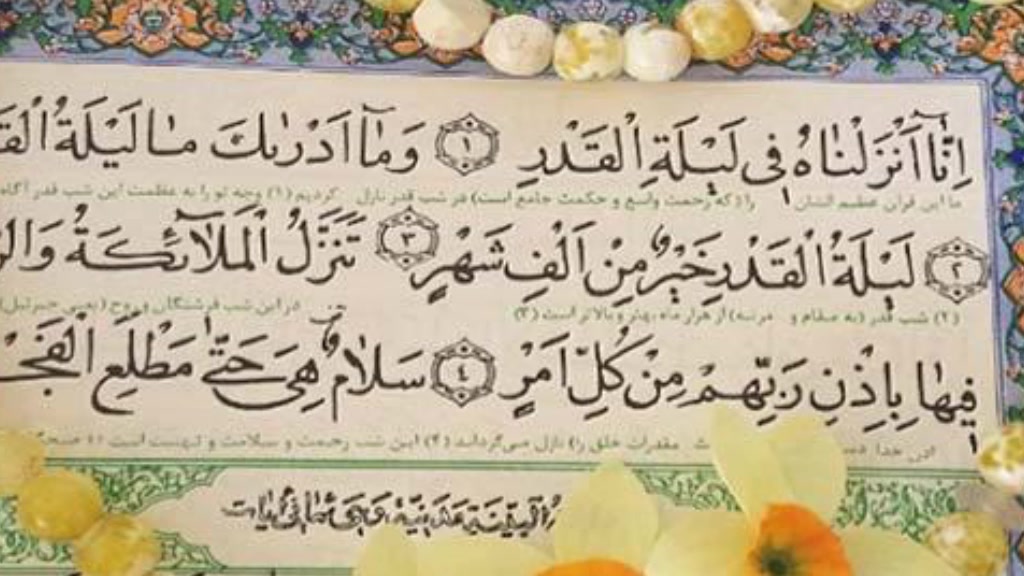 اِنَّآ اَنْزَلْنَاهُ فِى لَيْلَةِ الْقَدْرِ ﴿١﴾ وَمَآ اَدْرٰىكَ مٰا لَيْلَةُ الْقَ
ما این قرآن عظیم الشان را (که رحمت واسع و حکمت جامع است) در شب قدر نازل کردیم (۱) و چه تو را به عظمت این شب قدر آگاه
﴿٢﴾ لَيْلَةُ الْقَدْرِ خَيْرٌ مِنْ اَلْفِ شَهْرٍ ﴿٣﴾ تَنَزَّلُ الْمَلآئِكَةُ وَالر
(۲) شب قدر (به مقام و مرتبه) از هزار ماه بهتر و بالاتر است (۳) در این شب فرشتگان و روح (یعنی جبرئیل)
فِيهٰا بِاِذْنِ رَبِّهِمْ مِنْ كُلِّ اَمْرٍ ﴿٤﴾ سَلاٰمٌ هِىَ حَتّٰى مَطْلَعِ الْفَجْ
اذن خدا مقدرات خلق را) نازل می‌گرداند (۴) این شب رحمت و سلامت و تهنیت است